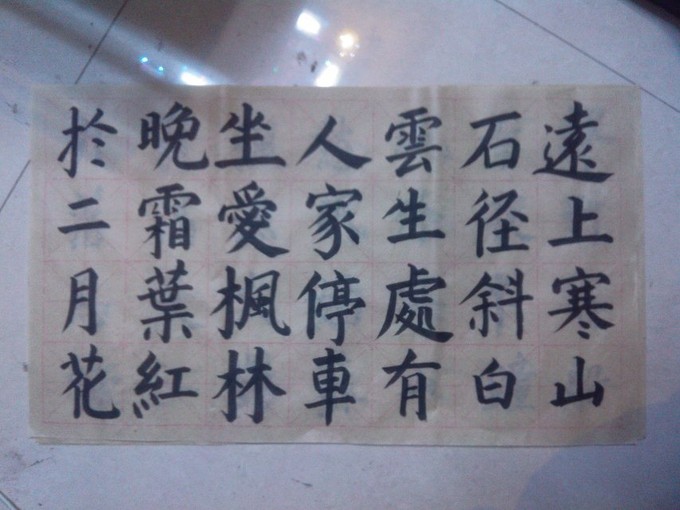 遠上寒山
石径斜白
雲生處有
人家停車
坐愛楓林
晚霜葉紅
於二月花